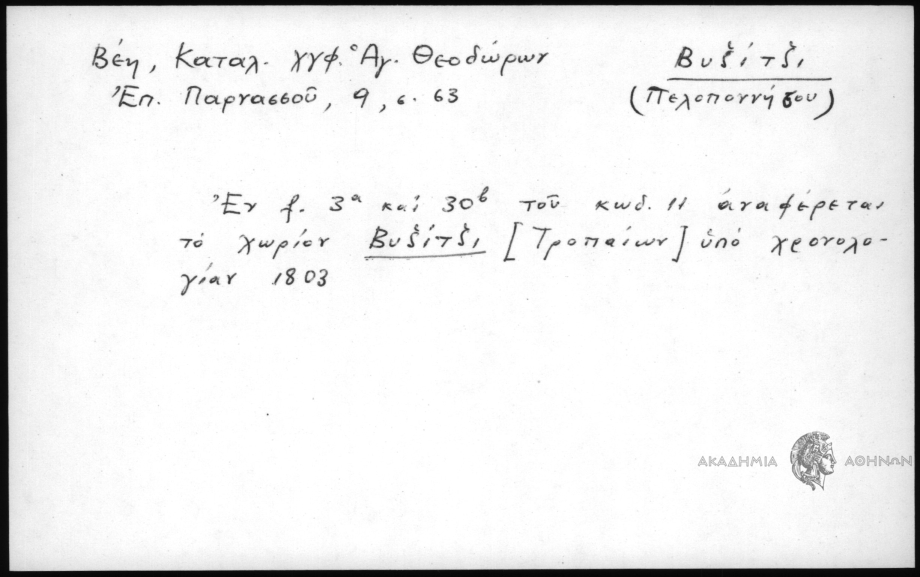 Βέη, Καταλ. χγφ. Ἁγ. Θεοδώρων
Ἐπ. Παρνασσοῦ, 9, σ. 63
Βυζίτζι
(Πελοποννήσου)
Ἐν f. 3α καὶ 30β τοῦ κωδ. 11 ἀναφέρεται
τὸ χωρίον Βυζίτζι [Τροπαίων] ὑπὸ χρονολο-
γίαν 1803
ΑΚΑΔΗΜΙΑ ΑΘΗΝΩΝ